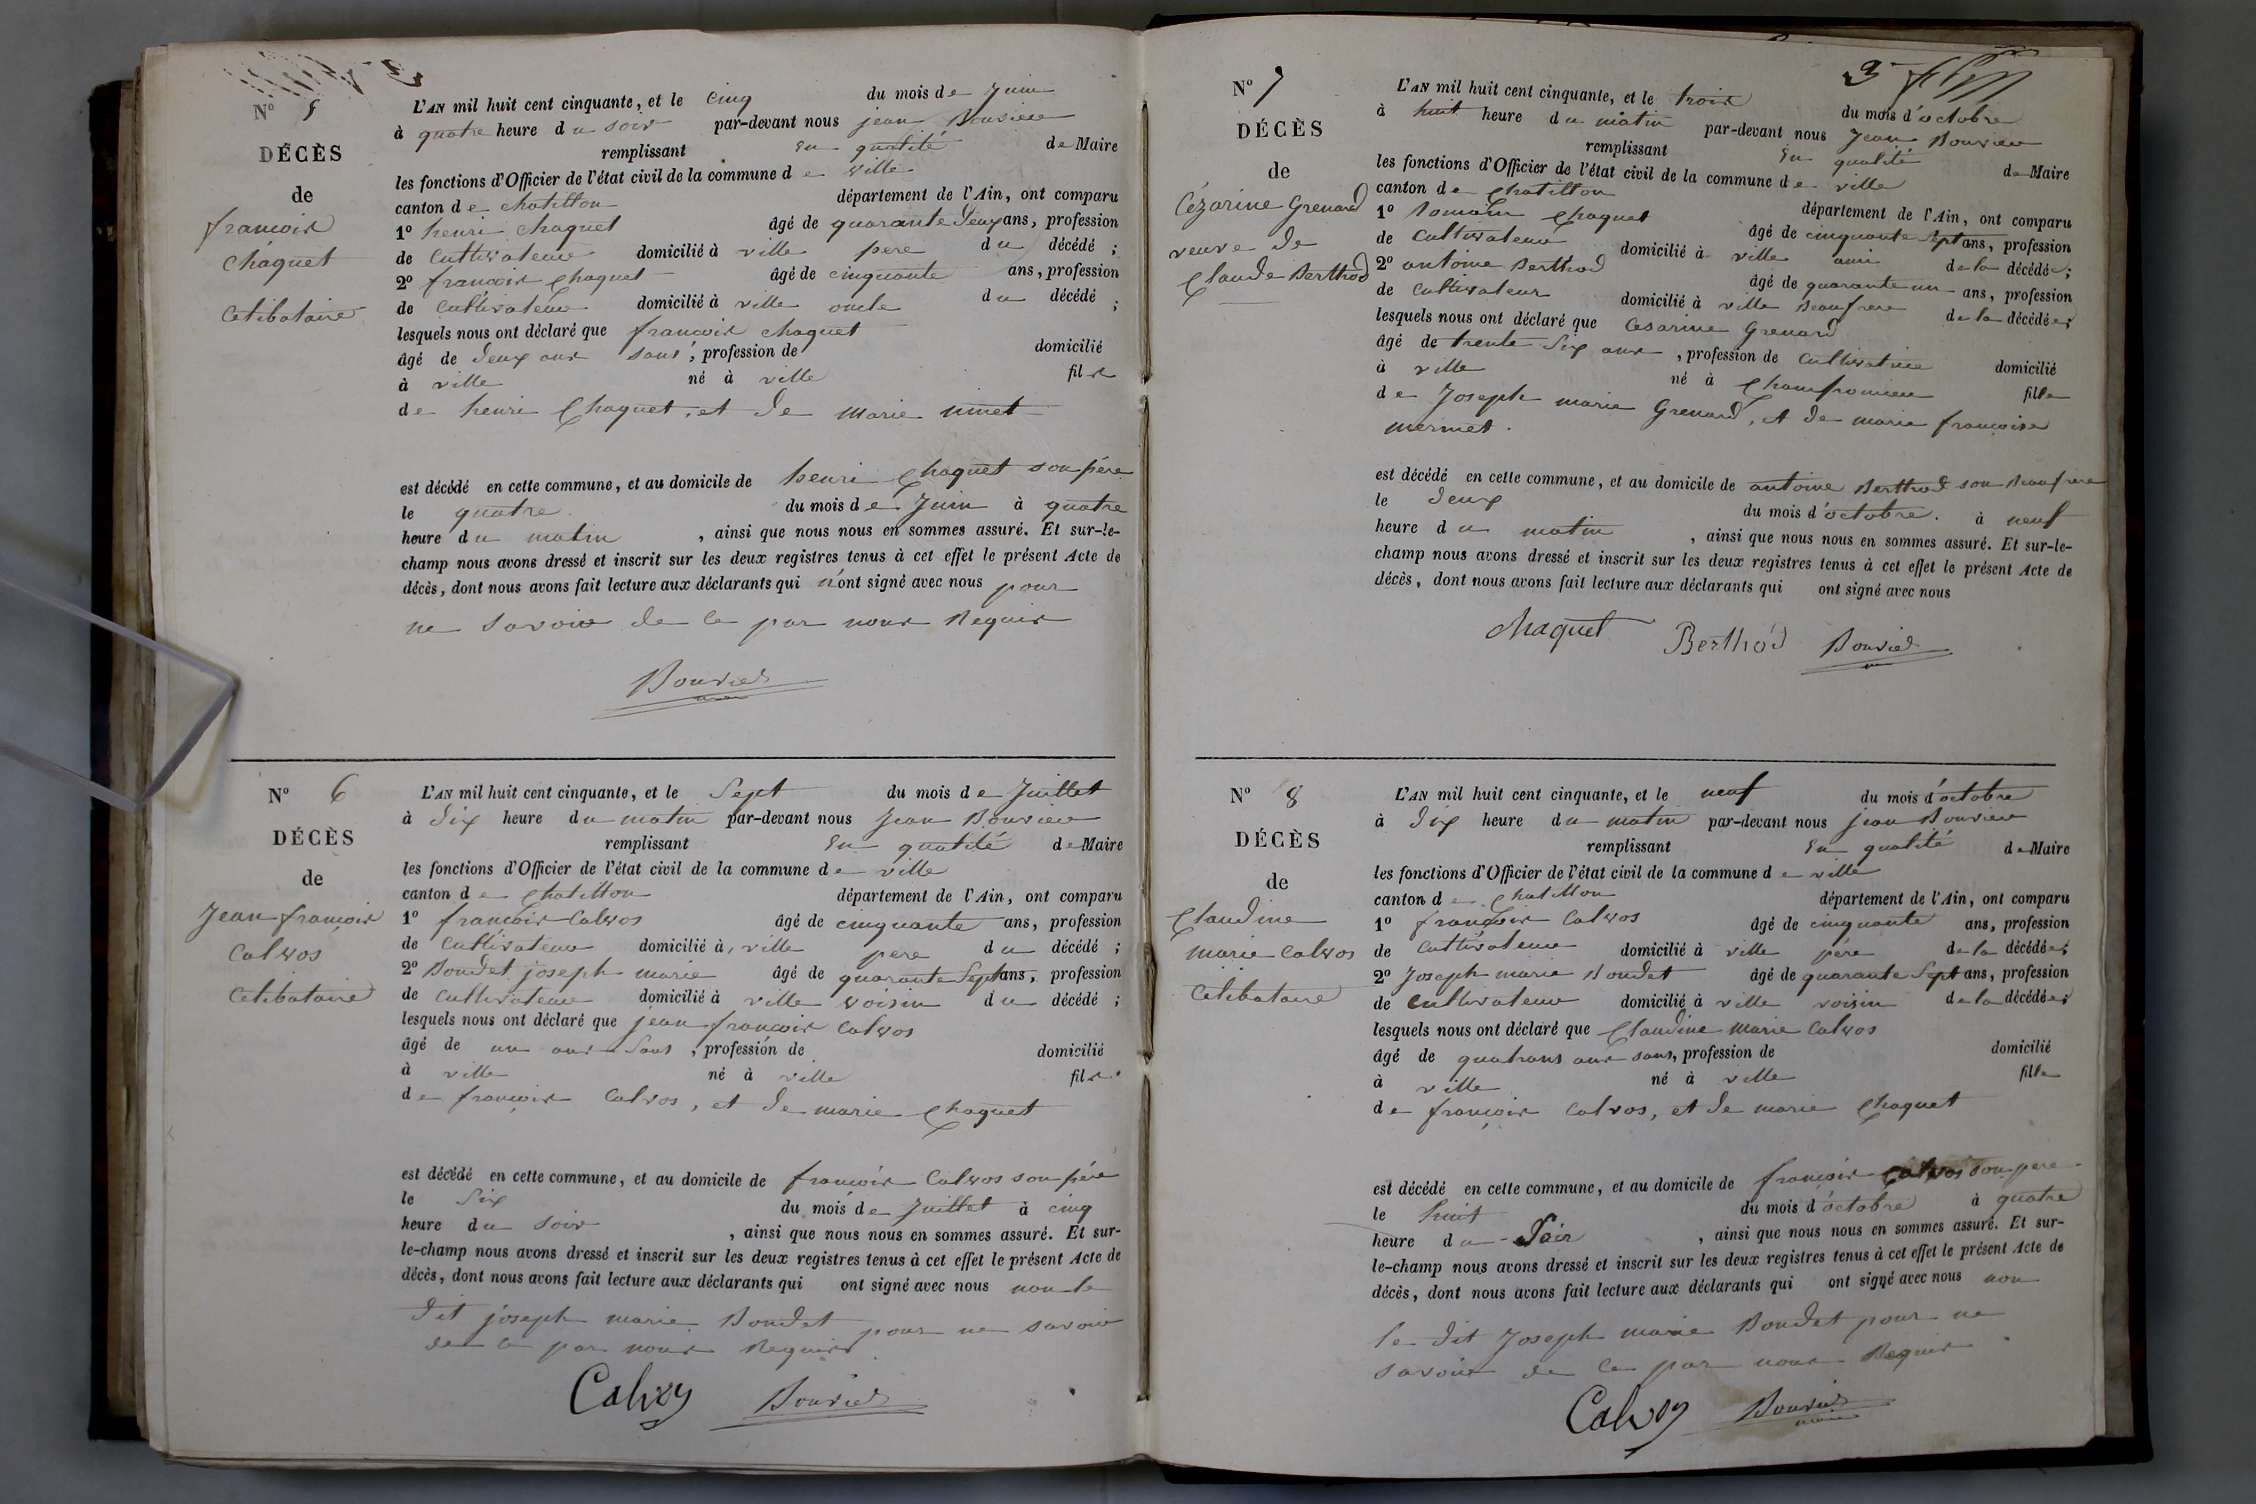 N° 5
DÉCÈS
de
francois
chaquet
celibataire
L'AN mil huit cent cinquante, et le cinq du mois de Juin
à quatre heure du soir par-devant nous jean Bouvier
remplissant en qualité de Maire
les fonctions d'Officier de l'état civil de la commune de ville
canton de chatillon département de l'Ain, ont comparu
1° henri chaquet âgé de quarante deux ans, profession
de cultivateur domicilié à ville pere du décédé ;
2° francois chaquet âgé de cinquante ans, profession
de cultivateur domicilié à ville oncle du décédé ;
lesquels nous ont déclaré que francois chaquet
âgé de deux ans sans, profession de domicilié
à ville né à ville fils
de henri Chaquet, et de marie ninet
est décédé en cette commune, et au domicile de henri Chaquet son père
le quatre du mois de Juin à quatre
heure du matin , ainsi que nous nous en sommes assuré. Et sur-le-
champ nous avons dressé et inscrit sur les deux registres tenus à cet effet le présent Acte de
décès, dont nous avons fait lecture aux déclarants qui n'ont signé avec nous pour
ne savoir de ce par nous Requis
Bouvier
N° 6
DÉCÈS
de
Jean francois
Calvos
celibataire
L'AN mil huit cent cinquante, et le Sept du mois de Juillet
à dix heure du matin par-devant nous Jean Bouvier
remplissant en qualité de Maire
les fonctions d'Officier de l'état civil de la commune de ville
canton de Chatillon département de l'Ain, ont comparu
1° françois Calvos âgé de cinquante ans, profession
de cultivateur domicilié à ville pere du décédé ;
2° Boudet joseph marie âgé de quarante Sept ans, profession
de cultivateur domicilié à ville voisin du décédé ;
lesquels nous ont déclaré que jean françois Calvos
âgé de un ans Sans , profession de domicilié
à ville né à ville fils
de françois Calvos, et de marie Chaquet
est décédé en cette commune, et au domicile de francois Calvos son père
le Six du mois de Juillet à cinq
heure du soir , ainsi que nous nous en sommes assuré. Et sur-
le-champ nous avons dressé et inscrit sur les deux registres tenus à cet effet le présent Acte de
décès, dont nous avons fait lecture aux déclarants qui ont signé avec nous non le
dit joseph marie Boudet pour ne savoir
de ce par nous Requis
Calvos Bouvier
3
N° 7
DÉCÈS
de
Cézarine Grenard
veuve de
Claude Berthod
L'AN mil huit cent cinquante, et le trois du mois d'octobre
à huit heure du matin par-devant nous Jean Bouvier
remplissant en qualité de Maire
les fonctions d'Officier de l'état civil de la commune de ville
canton de Chatillon département de l'Ain, ont comparu
1° Romain Chaquet âgé de cinquante Sept ans, profession
de cultivateur domicilié à ville ami de la décédée ;
2° antoine Berthod âgé de quarante un ans, profession
de cultivateur domicilié à ville Beaufrere de la décédée ;
lesquels nous ont déclaré que Cesarine Grenard
âgé de trente Six ans , profession de cultivatrice domicilié
à ville né à Chamfromier fille
de Joseph marie Grenard, et de marie francoise
mermet.
est décédé en cette commune, et au domicile de antoine Berthod son Beaufrere
le deux du mois d'octobre. à neuf
heure du matin , ainsi que nous nous en sommes assuré. Et sur-le-
champ nous avons dressé et inscrit sur les deux registres tenus à cet effet le présent Acte de
décès, dont nous avons fait lecture aux déclarants qui ont signé avec nous
chaquet Berthod Bouvier
N° 8
DÉCÈS
de
Claudine
marie Calvos
Celibataire
L'AN mil huit cent cinquante, et le neuf du mois d'octobre
à dix heure du matin par-devant nous jean Bouvier
remplissant en qualité de Maire
les fonctions d'Officier de l'état civil de la commune de ville
canton de Chatillon département de l'Ain, ont comparu
1° françois Calvos âgé de cinquante ans, profession
de cultivateur domicilié à ville père de la décédée ;
2° Joseph marie Boudet âgé de quarante Sept ans, profession
de cultivateur domicilié à ville voisin de la décédée ;
lesquels nous ont déclaré que Claudine marie Calvos
âgé de quatrans ans sans, profession de domicilié
à ville né à ville fille
de françois Calvos, et de marie Chaquet
est décédé en cette commune, et au domicile de françois Calvos son pere
le huit du mois d'octobre à quatre
heure du Soir , ainsi que nous nous en sommes assuré. Et sur-
le-champ nous avons dressé et inscrit sur les deux registres tenus à cet effet le présent Acte de
décès, dont nous avons fait lecture aux déclarants qui ont signé avec nous non
le dit Joseph marie Boudet pour ne
savoir de ce par nous Requis
Calvos Bouvier
maire